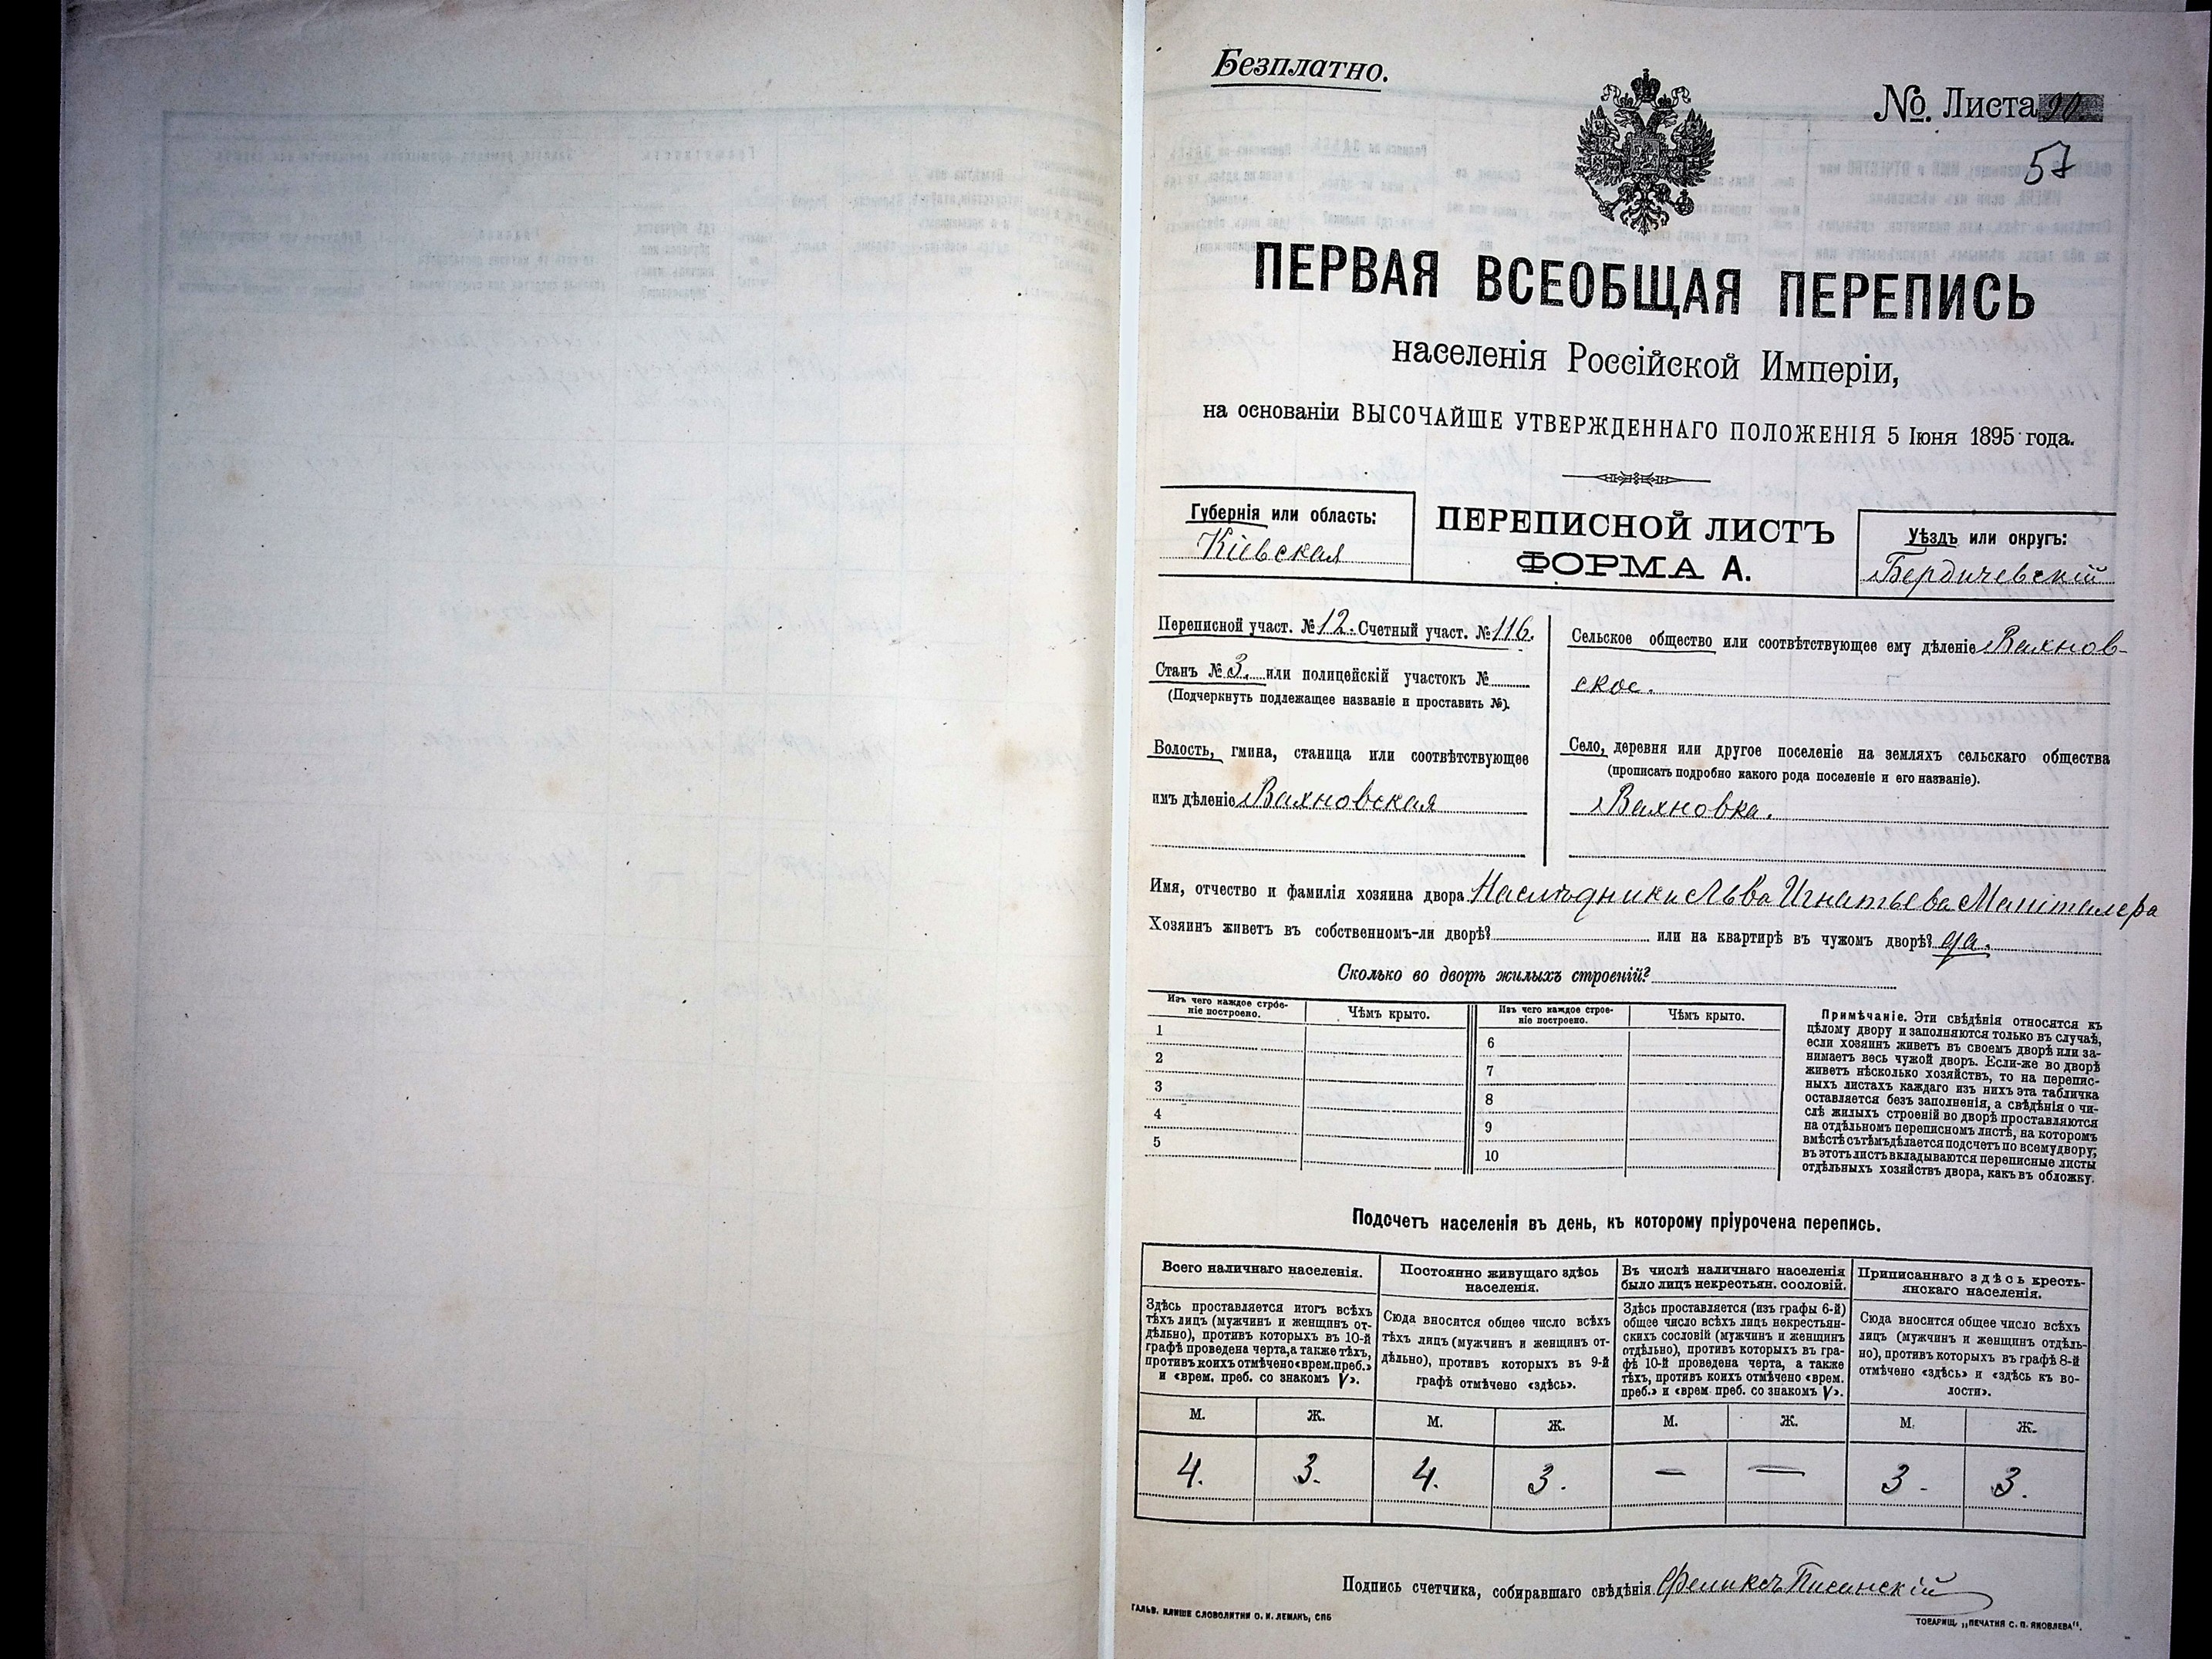 Безплатно.
№. Листа 90.
57
ПЕРВАЯ ВСЕОБЩАЯ ПЕРЕПИСЬ
населенія Россійской Имперіи,
на основаніи ВЫСОЧАЙШЕ УТВЕРЖДЕННАГО ПОЛОЖЕНІЯ 5 Іюня 1895 года.
Губернія или область:
Кіевская
ПЕРЕПИСНОЙ ЛИСТЪ
ФОРМА А.
Уѣздъ или округъ:
Бердичевскій
Переписной участ. № 12. Счетный участ. № 116.
Станъ № 3. или полицейскій участокъ №
(Подчеркнуть подлежащее названіе и проставить №).
Волость, гмина, станица или соотвѣтствующее
имъ дѣленіе Вахновская
Сельское общество или соотвѣтствующее ему дѣленіе Вахнов-
ское.
Село, деревня или другое поселеніе на земляхъ сельскаго общества
(прописать подробно какого рода поселеніе и его названіе).
Вахновка.
Имя, отчество и фамилія хозяина двора Наслѣдники Льва Игнатьева Машталера
Хозяинъ живетъ въ собственномъ-ли дворѣ? или на квартирѣ въ чужомъ дворѣ? да.
Сколько во дворѣ жилыхъ строеній?
Изъ чего каждое строе-
ніе построено.
Чѣмъ крыто.
Изъ чего каждое строе-
ніе построено.
Чѣмъ крыто.
1
2
3
4
5
6
7
8
9
10
Примѣчаніе. Эти свѣдѣнія относятся къ
цѣлому двору и заполняются только въ случаѣ,
если хозяинъ живетъ въ своемъ дворѣ или за-
нимаетъ весь чужой дворъ. Если-же во дворѣ
живетъ нѣсколько хозяйствъ, то на перепис-
ныхъ листахъ каждаго изъ нихъ эта табличка
оставляется безъ заполненія, а свѣдѣнія о чи-
слѣ жилыхъ строеній во дворѣ проставляются
на отдѣльномъ переписномъ листѣ, на которомъ
вмѣстѣ съ тѣмъ дѣлается подсчетъ по всему двору;
въ этотъ листъ вкладываются переписные листы
отдѣльныхъ хозяйствъ двора, какъ въ обложку.
Подсчетъ населенія въ день, къ которому пріурочена перепись.
Всего наличнаго населенія.
Здѣсь проставляется итогъ всѣхъ
тѣхъ лицъ (мужчинъ и женщинъ от-
дѣльно), противъ которыхъ въ 10-й
графѣ проведена черта, а также тѣхъ,
противъ коихъ отмѣчено «врем. преб.»
и «врем. преб. со знакомъ V».
Постоянно живущаго здѣсь
населенія.
Сюда вносится общее число всѣхъ
тѣхъ лицъ (мужчинъ и женщинъ от-
дѣльно), противъ которыхъ въ 9-й
графѣ отмѣчено «здѣсь».
Въ числѣ наличнаго населенія
было лицъ некрестьян. сословій.
Здѣсь проставляется (изъ графы 6-й)
общее число всѣхъ лицъ некрестьян-
скихъ сословій (мужчинъ и женщинъ
отдѣльно), противъ которыхъ въ гра-
фѣ 10-й проведена черта, а также
тѣхъ, противъ коихъ отмѣчено «врем.
преб.» и «врем преб. со знакомъ V».
Приписаннаго здѣсь кресть-
янскаго населенія.
Сюда вносится общее число всѣхъ
лицъ (мужчинъ и женщинъ отдѣль-
но), противъ которыхъ въ графѣ 8-й
отмѣчено «здѣсь» и «здѣсь къ во-
лости».
М. Ж. М. Ж. М. Ж. М. Ж.
4. 3. 4. 3. — — 3. 3.
Подпись счетчика, собиравшаго свѣдѣнія Феликсъ Писанскій
ГАЛЬВ. КЛИШЕ СЛОВОЛИТНИ О. И. ЛЕМАНЪ, СПБ
ТОВАРИЩ. „ПЕЧАТНЯ С. П. ЯКОВЛЕВА".